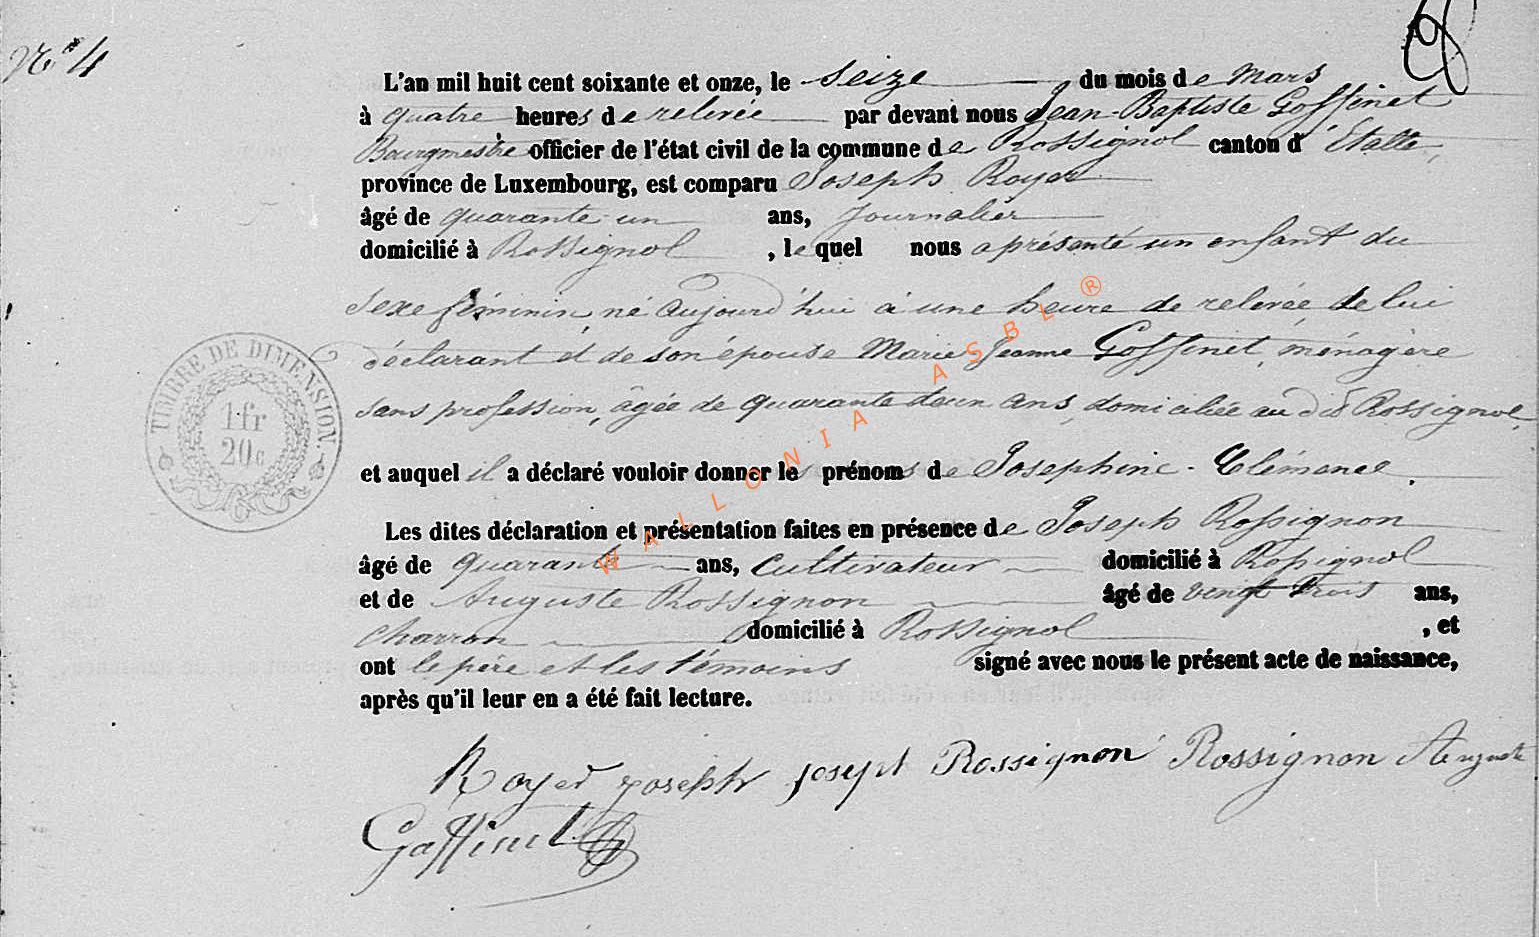 N° 4
L'an mil huit cent soixante et onze, le seize du mois de mars
à quatre heures de relevée par devant nous Jean-Baptiste Goffinet
Bourgmestre officier de l'état civil de la commune de Rossignol canton d'Etalle,
province de Luxembourg, est comparu Joseph Royer
âgé de quarante-un ans, journalier
domicilié à Rossignol, lequel nous a présenté un enfant du
sexe féminin, né aujourd'hui à une heure de relevée de lui
déclarant et de son épouse Marie Jeanne Goffinet, ménagère
sans profession, âgée de quarante deux ans, domiciliée au dit Rossignol,
et auquel il a déclaré vouloir donner les prénoms de Josephine-Clémence.
Les dites déclaration et présentation faites en présence de Joseph Rossignon
âgé de quarante ans, cultivateur domicilié à Rossignol
et de Auguste Rossignon âgé de vingt trois ans,
charron domicilié à Rossignol, et
ont le père et les témoins signé avec nous le présent acte de naissance,
après qu'il leur en a été fait lecture.
Royer joseph joseph Rossignon Rossignon Auguste
Goffinet
TIMBRE DE DIMENSION.
1 fr
20c
WALLONIA ASBL ®